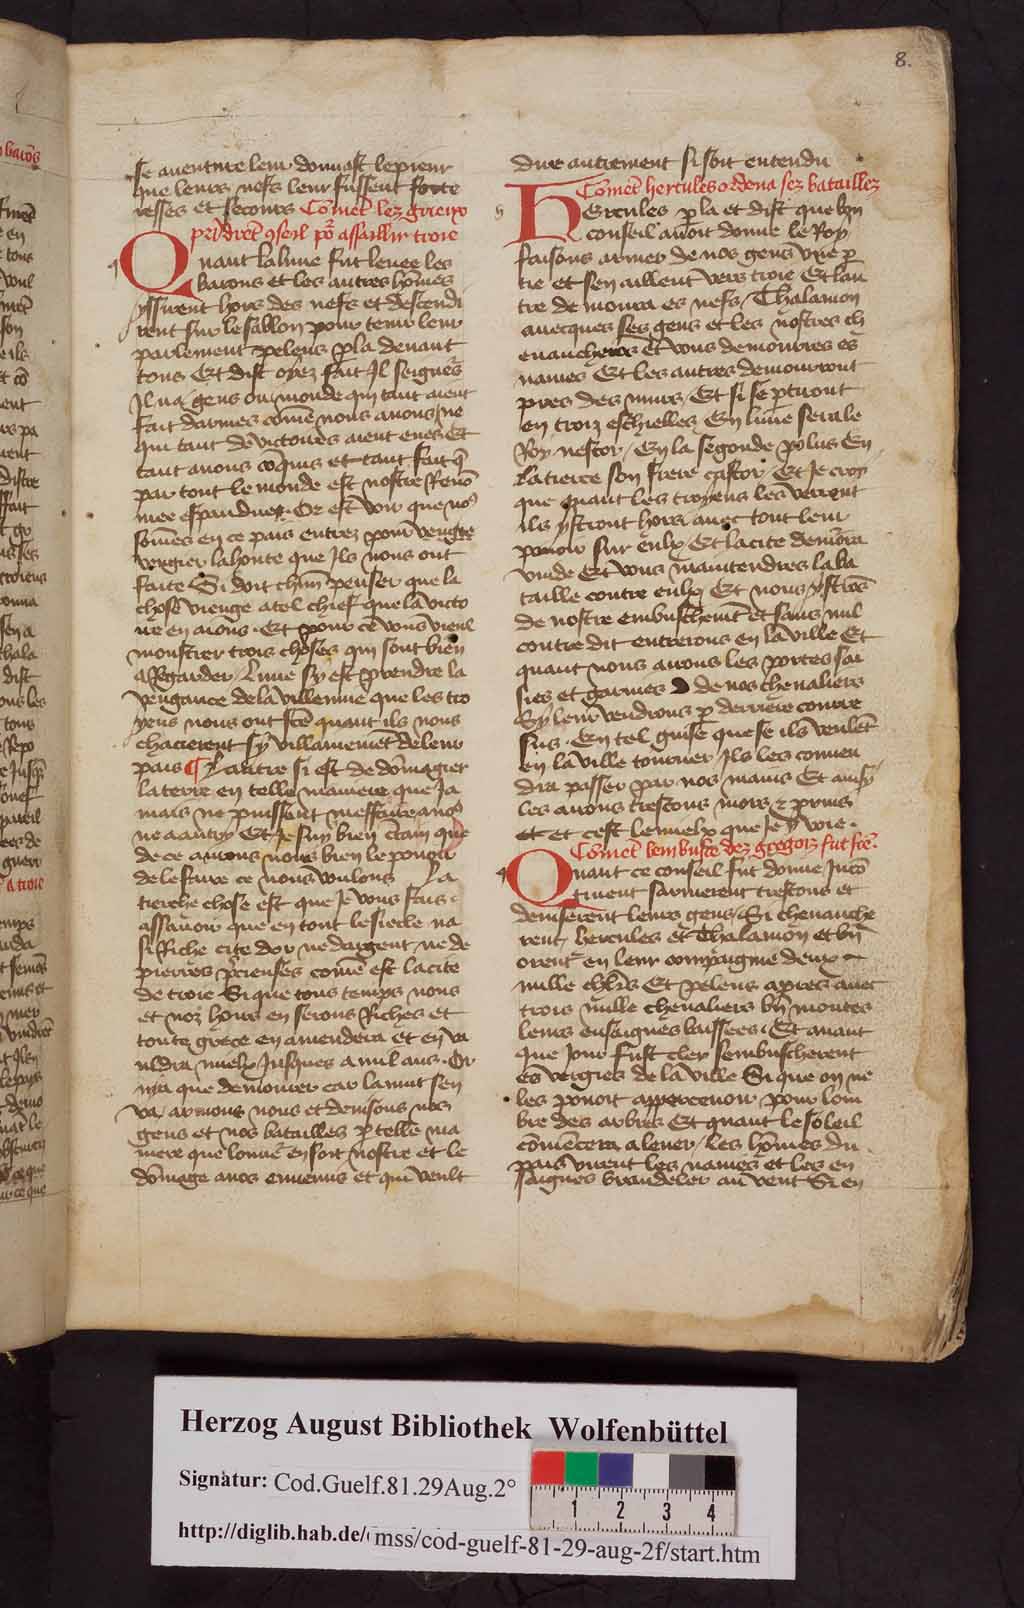 8.
se auenture leur donnast lepieur
que leurs nefs leur fussent forte
resses et secours Com̄et lez grieux
prīdret 9seil po᷑ assaillir troie
Quant la lune fut leuee les
barons et les autres hōmes
yssirent hors des nefs et descendi
rent sur le sablon pour tenir leur
parlement peleus pla deuant
tous Et dist oyez fait Il seigneᷣs
Il na gens ou monde qui tant aient
fait darmes com̄e nous auons ne
qui tant de victoires aient eues Et
tant auons coquis et tant fait q̄
par tout le monde est nostre Renō
mee espandue. Or est voir que noꝰ
som̄es en ce pais entrez pour
vengier la honte que Ils nous ont
faite Si doit chūn penser que la
chose viengne a tel chief que la victo
ire en aions. Et pour ce vous vueil
monstrer trois choses qui sont bien
a Regarder / Lune sy est prendre la
vengance de la villennie que les tro
yens nous ont fcē quant ils nous
chacierent sy villainemēt de leur
pais ¶ Lautre si est de dōmagier
la terre en telle maniere que Ja
mais ne puissent meffaire a noꝰ
ne a autry Et Je suy bien ctain que
de ce auons nous bien le pouoir
de le faire ce nous voulons La
tierche chose est que Je vous fais
assauoir que en tout le siecle na
si Riche cite dor ne dargent ne de
pierres p̄cieuses com̄e est la cite
de troie Si que tous temps nous
et noz hoirs en serons Riches et
toute grece en amendera et en va
uldra mielx Jusques a mil ans. Or
nya que demourer car la nuit sen
va armons nous et deuisons nos
gens et nos batailles p telle ma
niere que lonneᷣ en soit nostre et le
dōmage a nos ennemis et qui veult
dire autrement si soit entendu
Com̄et hercules ordena sez bataillez
Hercules pla et dist que bon
conseil auoit donne le Roy
faisons armer de nos gens vne p
tie et sen aillent vers troie Et lau
tre demoura es nefs / Thalamon
auecques ses gens et les nostres ch
euaucherons Et vous demourres es
nauies Et les autres demourront
pres des murs / Et si se ptiront
en troiz eschielles En lune sera le
Roy nestor / En la segonde polus En
la tierce son frere castor / Et Je croy
que quant les troyens les verront
ils ystront hors auec tout leur
pouoir sur eulx / Et la cite demōra
vuide Et vous maintendres la ba
taille contre eulx Et nous ystrōs
de nostre embuschemēt et sans nul
contredit entrerons en la ville Et
quant nous aurons les portes sai
sies et garnies de nos cheualiers
Sy leur vendrons p derriere courre
sus. En tel guise que se ils veulēt
en la ville tourner / Ils les conuen
dra passer par nos mains Et ainsy
les aurons trestous mors & prins
et et cest le mielx que Je y voie.
Com̄et lembusce dez gregoiz fut fcē.
Quant ce conseil fut donne / Incō
tinent sarmerent trestous et
deuiserent leurs gens / Si cheuauche
rent hercules et Thalamon et bn̄
orent en leur compaignie deux
mille chl̄rs Et peleus apres auec
trois mille cheualiers bn̄ montes
leurs ensaignes baissees. Et auant
que Jour fust cler sembuscherent
es vergies de la ville Si que on ne
les pouoit apperceuoir pour lom
bre des arbres Et quant le soleil
cōmēcera a leuer / les hōmes du
pais virent les nauies et les en
saignes brandeler au vent Si en
Herzog August Bibliothek Wolfenbüttel
Signatur: Cod.Guelf.81.29Aug.2°
1 2 3 4
http://diglib.hab.de/mss/cod-guelf-81-29-aug-2f/start.htm